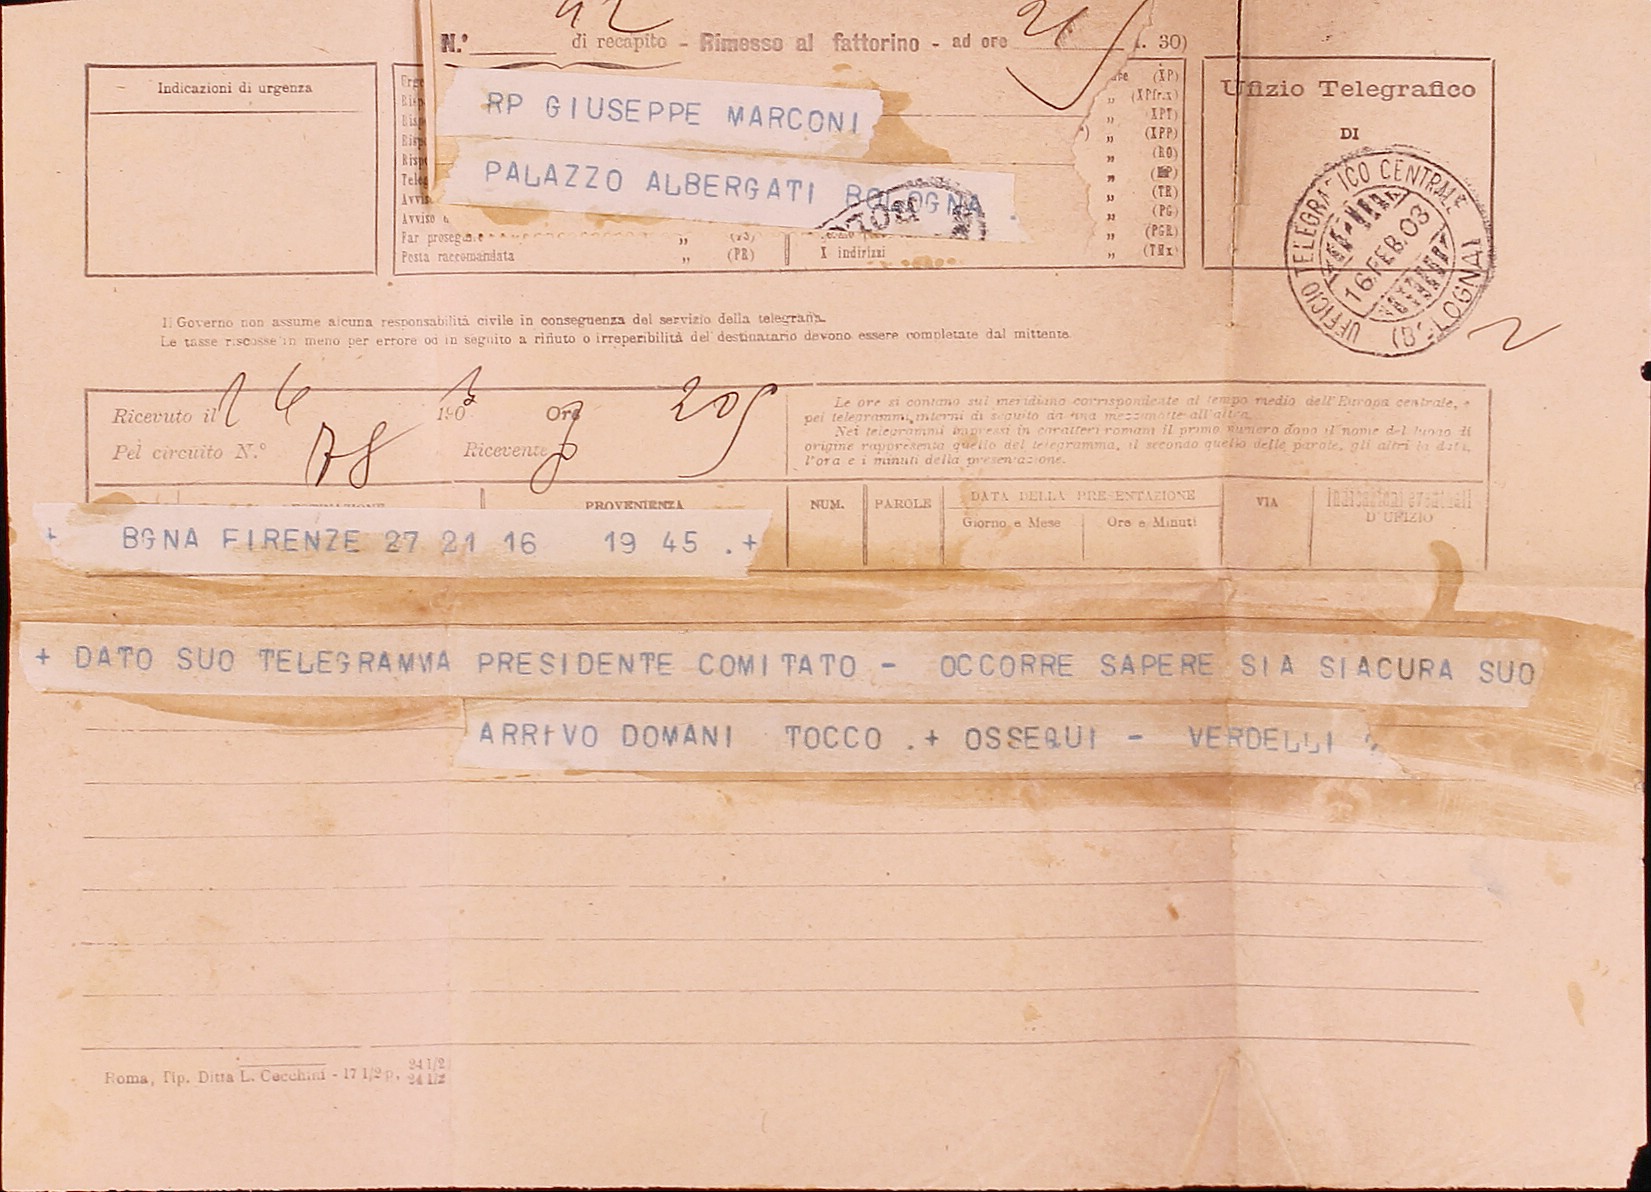 N.° 42 di recapito - Rimesso al fattorino - ad ore 30)
Indicazioni di urgenza
RP GIUSEPPE MARCONI
PALAZZO ALBERGATI BOLOGNA .
(XP)
„ (XPfr.x)
„ XPT)
„ (XPP)
„ (RO)
„
„ (TR)
„ (PG)
„ (PGR)
„ (TMx)
Posta raccomandata „ (PR) X indirizzi
Ufizio Telegrafico
DI
UFFICIO TELEGRAFICO CENTRALE (BOLOGNA)
16.FEB.03
Il Governo non assume alcuna responsabilità civile in conseguenza del servizio della telegrafia.
Le tasse riscosse in meno per errore od in seguito a rifiuto o irreperibilità del destinatario devono essere completate dal mittente
Ricevuto il 16 1903 Ore 205
Pel circuito N.° 78 Ricevente
Le ore si contano sul meridiano corrispondente al tempo medio dell'Europa centrale, e
pei telegrammi interni di seguito da una mezzanotte all'altra.
Nei telegrammi impressi in caratteri romani il primo numero dopo il nome del luogo di
origine rappresenta quello del telegramma, il secondo quello delle parole, gli altri la data,
l'ora e i minuti della presentazione.
PROVENIENZA NUM. PAROLE DATA DELLA PRESENTAZIONE VIA Indicazioni eventuali
Giorno e Mese Ore e Minuti D'UFIZIO
+ BGNA FIRENZE 27 21 16 19 45 .+
+ DATO SUO TELEGRAMMA PRESIDENTE COMITATO - OCCORRE SAPERE SIA SIACURA SUO
ARRIVO DOMANI TOCCO .+ OSSEQUI - VERDELLI
Roma, Tip. Ditta L. Cecchini - 17 1/2 p. 24 1/2
24 1/2